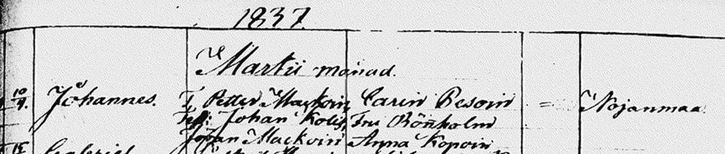 1837.
Martii månad.
Johannes. T, Petter Mackoin, Carin Besoin = Nojanmaa
Johan Fru Rönholm
Johan Mackoin Anna Kopoin
Gabriel